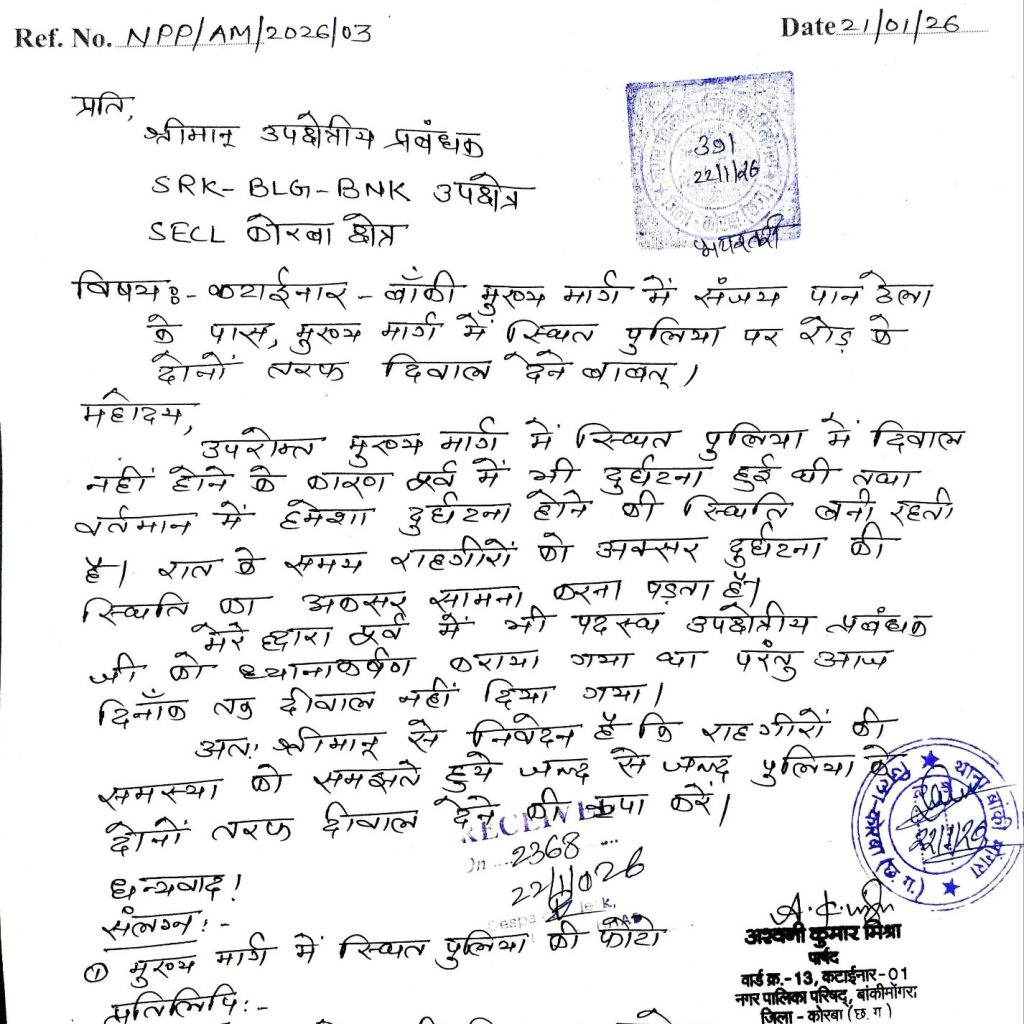 Ref. No. NPP/AM/2026/03
Date 21/01/26
391
22/1/26
जिला - कोरबा (छ.ग.)
प्रति,
श्रीमान् उपक्षेत्रीय प्रबंधक
SRK-BLG-BNK उपक्षेत्र
SECL कोरबा क्षेत्र
विषय:- कटाईनार - बाँकी मुख्य मार्ग में संजय पान ठेला
के पास, मुख्य मार्ग में स्थित पुलिया पर रोड़ के
दोनों तरफ दिवाल देने बाबत् ।
महोदय,
उपरोक्त मुख्य मार्ग में स्थित पुलिया में दिवाल
नहीं होने के कारण पूर्व में भी दुर्घटना हुई थी तथा
वर्तमान में हमेशा दुर्घटना होने की स्थिति बनी रहती
है। रात के समय राहगीरों को अक्सर दुर्घटना की
स्थिति का अक्सर सामना करना पड़ता है।
मेरे द्वारा पूर्व में भी पदस्थ उपक्षेत्रीय प्रबंधक
जी को ध्यानाकर्षण कराया गया था परंतु आज
दिनाँक तक दीवाल नहीं दिया गया।
अतः श्रीमान् से निवेदन है कि राहगीरों की
समस्या को समझते हुये जल्द से जल्द पुलिया के
दोनों तरफ दीवाल देने की कृपा करें।
RECEIVED
On ... 2368
22/1/026
धन्यवाद !
थाना बांकी मोंगरा
जिला-कोरबा (छ.ग.)
22/1/26
संलग्न :-
① मुख्य मार्ग में स्थित पुलिया की फोटो
प्रतिलिपि:-
अश्वनी कुमार मिश्रा
पार्षद
वार्ड क्र.-13, कटाईनार-01
नगर पालिका परिषद्, बांकीमोंगरा
जिला - कोरबा (छ.ग)